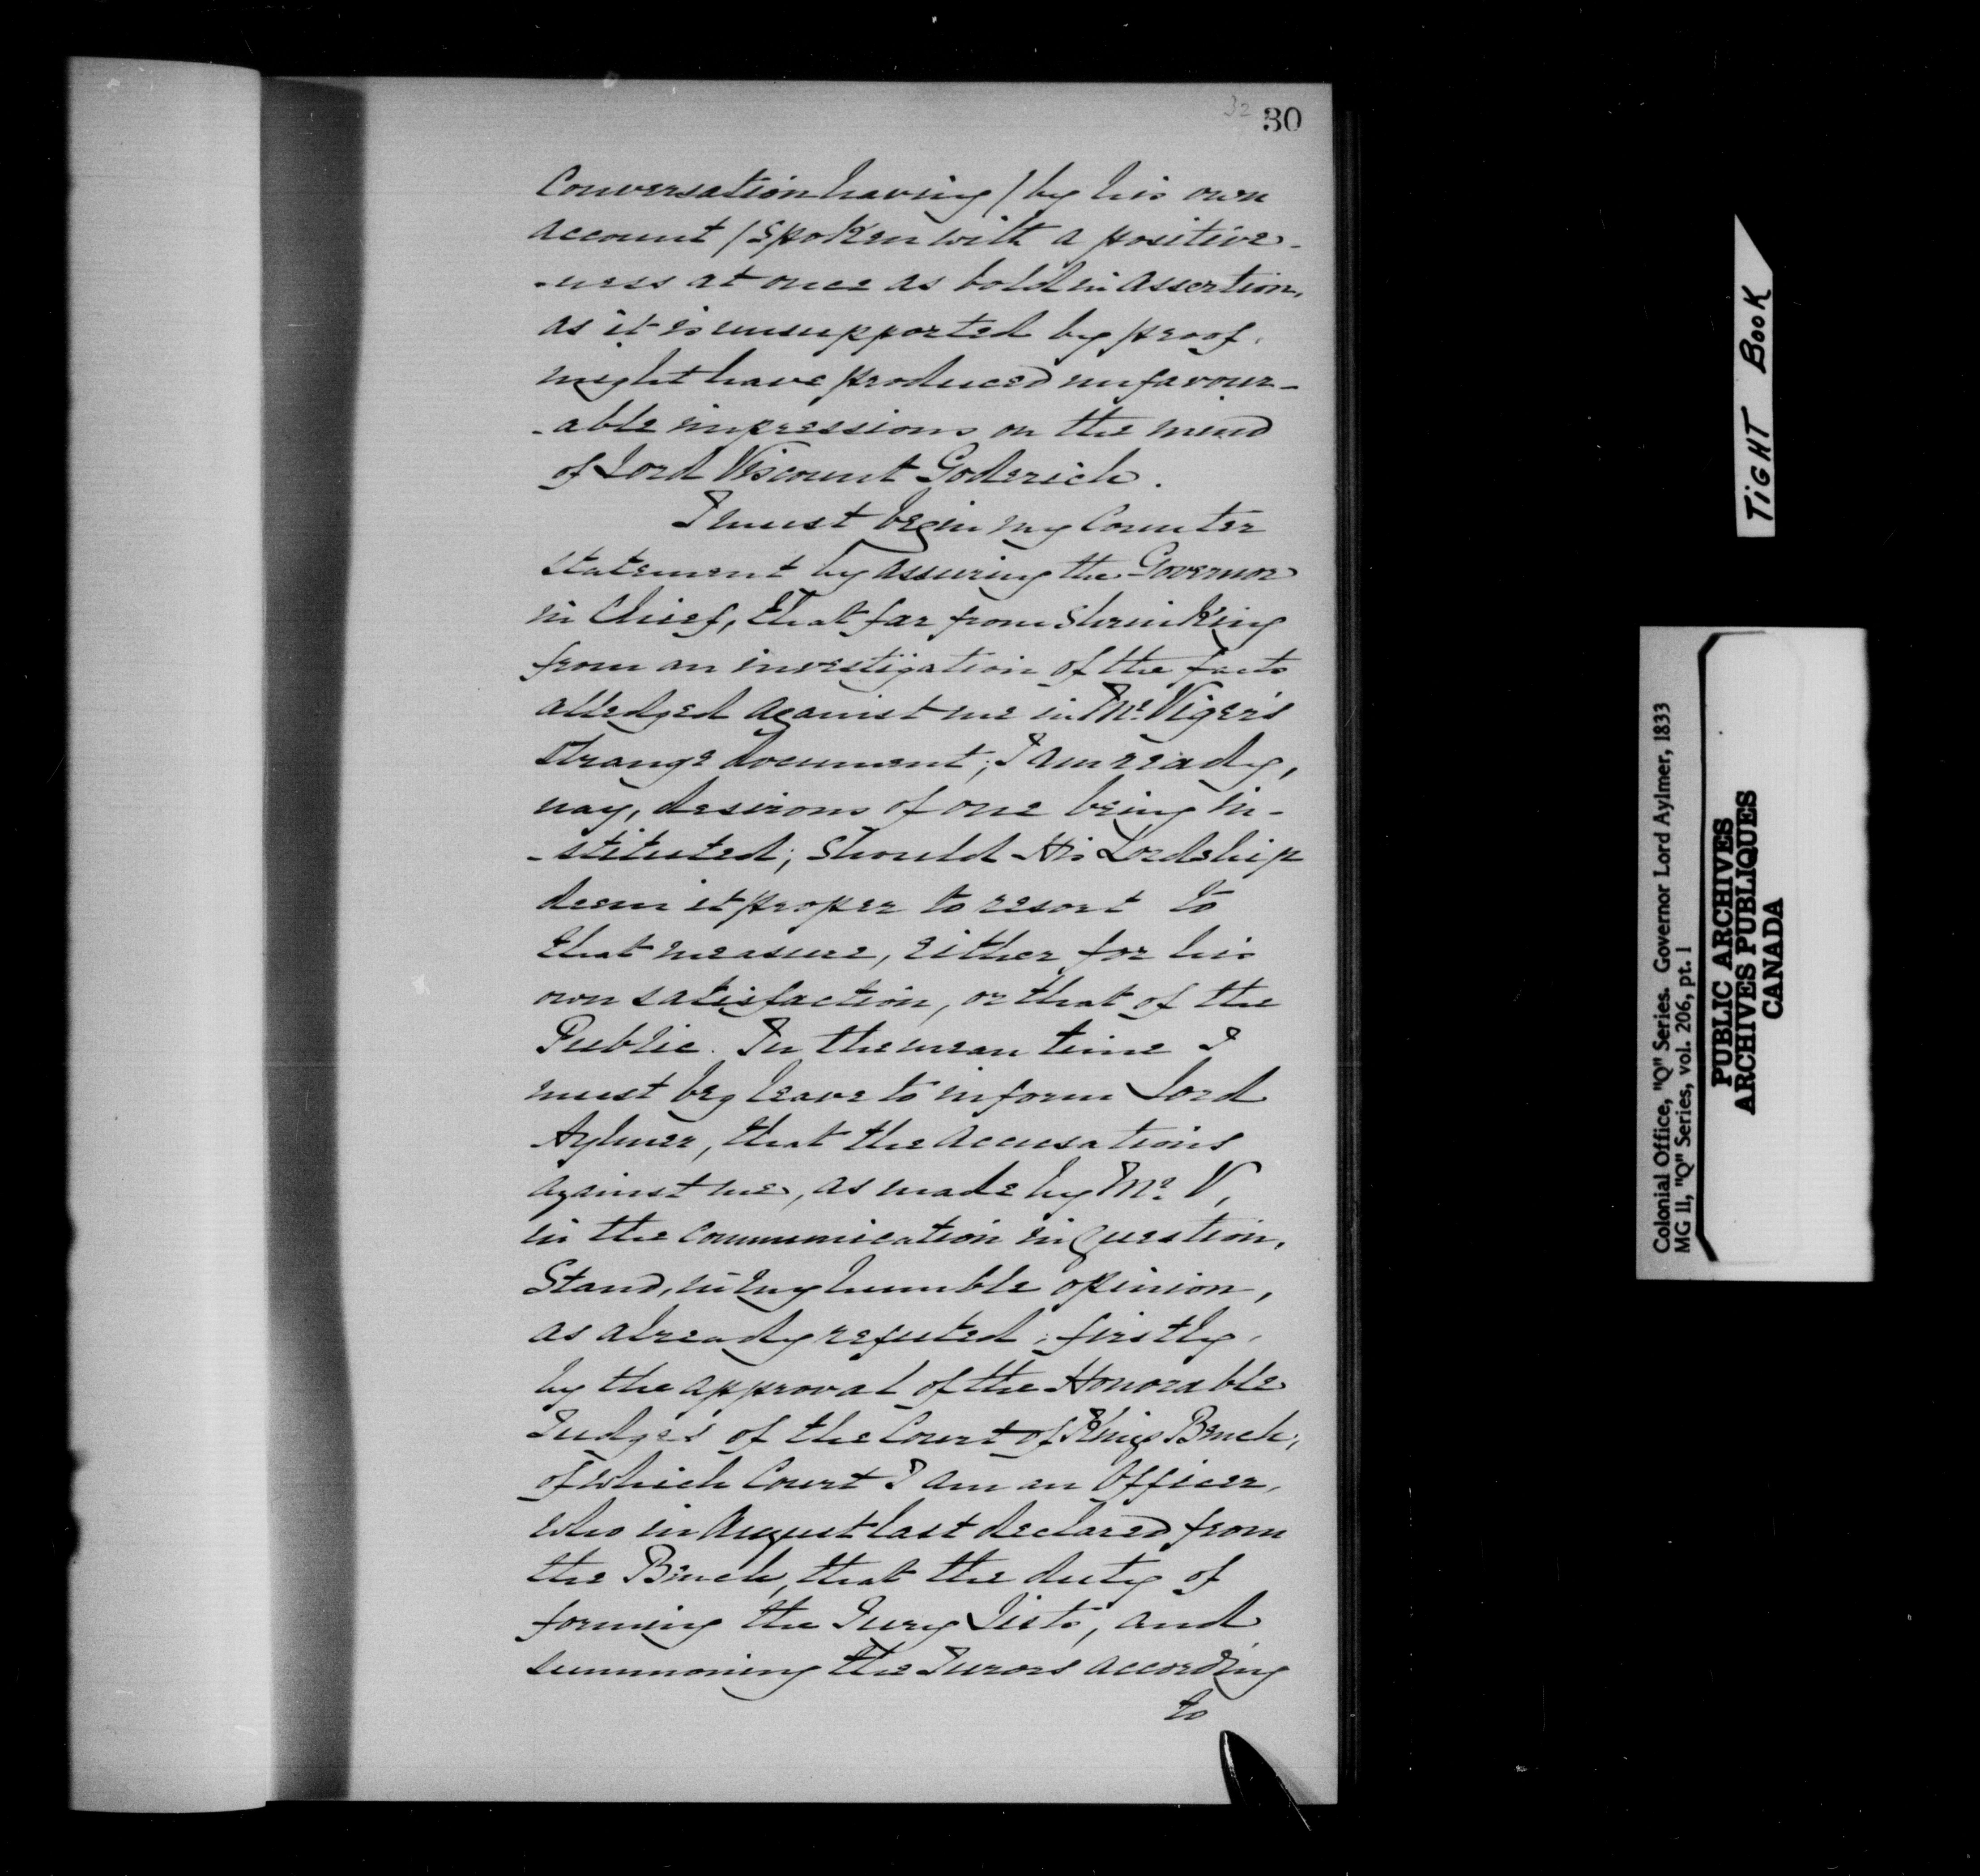 32 30
Conversation having / by his own
account / spoken with a positive-
-ness at once as bold in assertion,
as it is unsupported by proof,
might have produced unfavour-
-able impressions on the mind
of Lord Viscount Goderich.
I must begin my Counter
statement by assuring the Governor
in Chief, that far from shrinking
from an investigation of the facts
alledged against me in Mr. Viger's
strange document; I am ready,
nay, desirous of one being in-
-stituted; should His Lordship
deem it proper to resort to
that measure, either for his
own satisfaction, or that of the
Public. In the mean time I
must beg leave to inform Lord
Aylmer, that the accusations
against me, as made by Mr. V,
in the communication in question,
Stand, in my humble opinion,
as already refuted; firstly,
by the approval of the Honorable
Judges of the Court of Kings Bench,
of which Court I am an Officer,
who in August last declared from
the Bench, that the duty of
forming the Jury Lists, and
summoning the Jurors according
to
TIGHT BOOK
Colonial Office, "Q" Series. Governor Lord Aylmer, 1833
MG 11, "Q" Series, vol. 206, pt. 1
PUBLIC ARCHIVES
ARCHIVES PUBLIQUES
CANADA